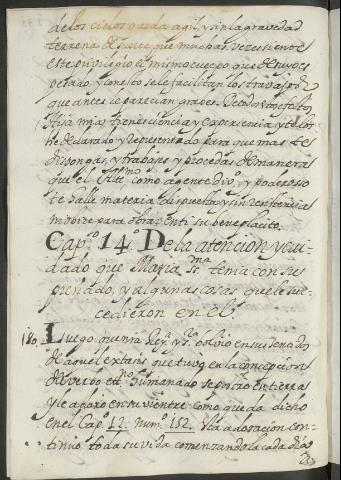 de los cielos queda agil, y sin la gravedad
terrena de suerte que muchas veces siente
este privilegio el mismo cuerpo que de suyo es
pesado y con esto se le facilitan los trabajos
que antes le parecian graves. De todos estos efectos
Hija mia tienes ciencia y experiencia y te los
he declarado y representado para que mas te
dispongas, y trabajes y procedas de manera
que el Altmo como agente divo. y poderoso
te halle materia dispuesta y sin resistencia
para obrar en ti su beneplacito.
Capo. 14o. De la atencion y cui-
dado que Maria sma. tenia con su
preñado, y algunas cosas que le suc-
cedieron en el
180. Luego que nra Reyna y sa. bolvio en sus sentidos
de aquel extasis que tuvo en la concepcion
del verbo etno. humanado se postro en tierra
y le adoro en su vientre como queda dicho
en el Capo. 12. Numo. 152. Esta adoracion con-
tinuo toda su vida comenzandola cada dia